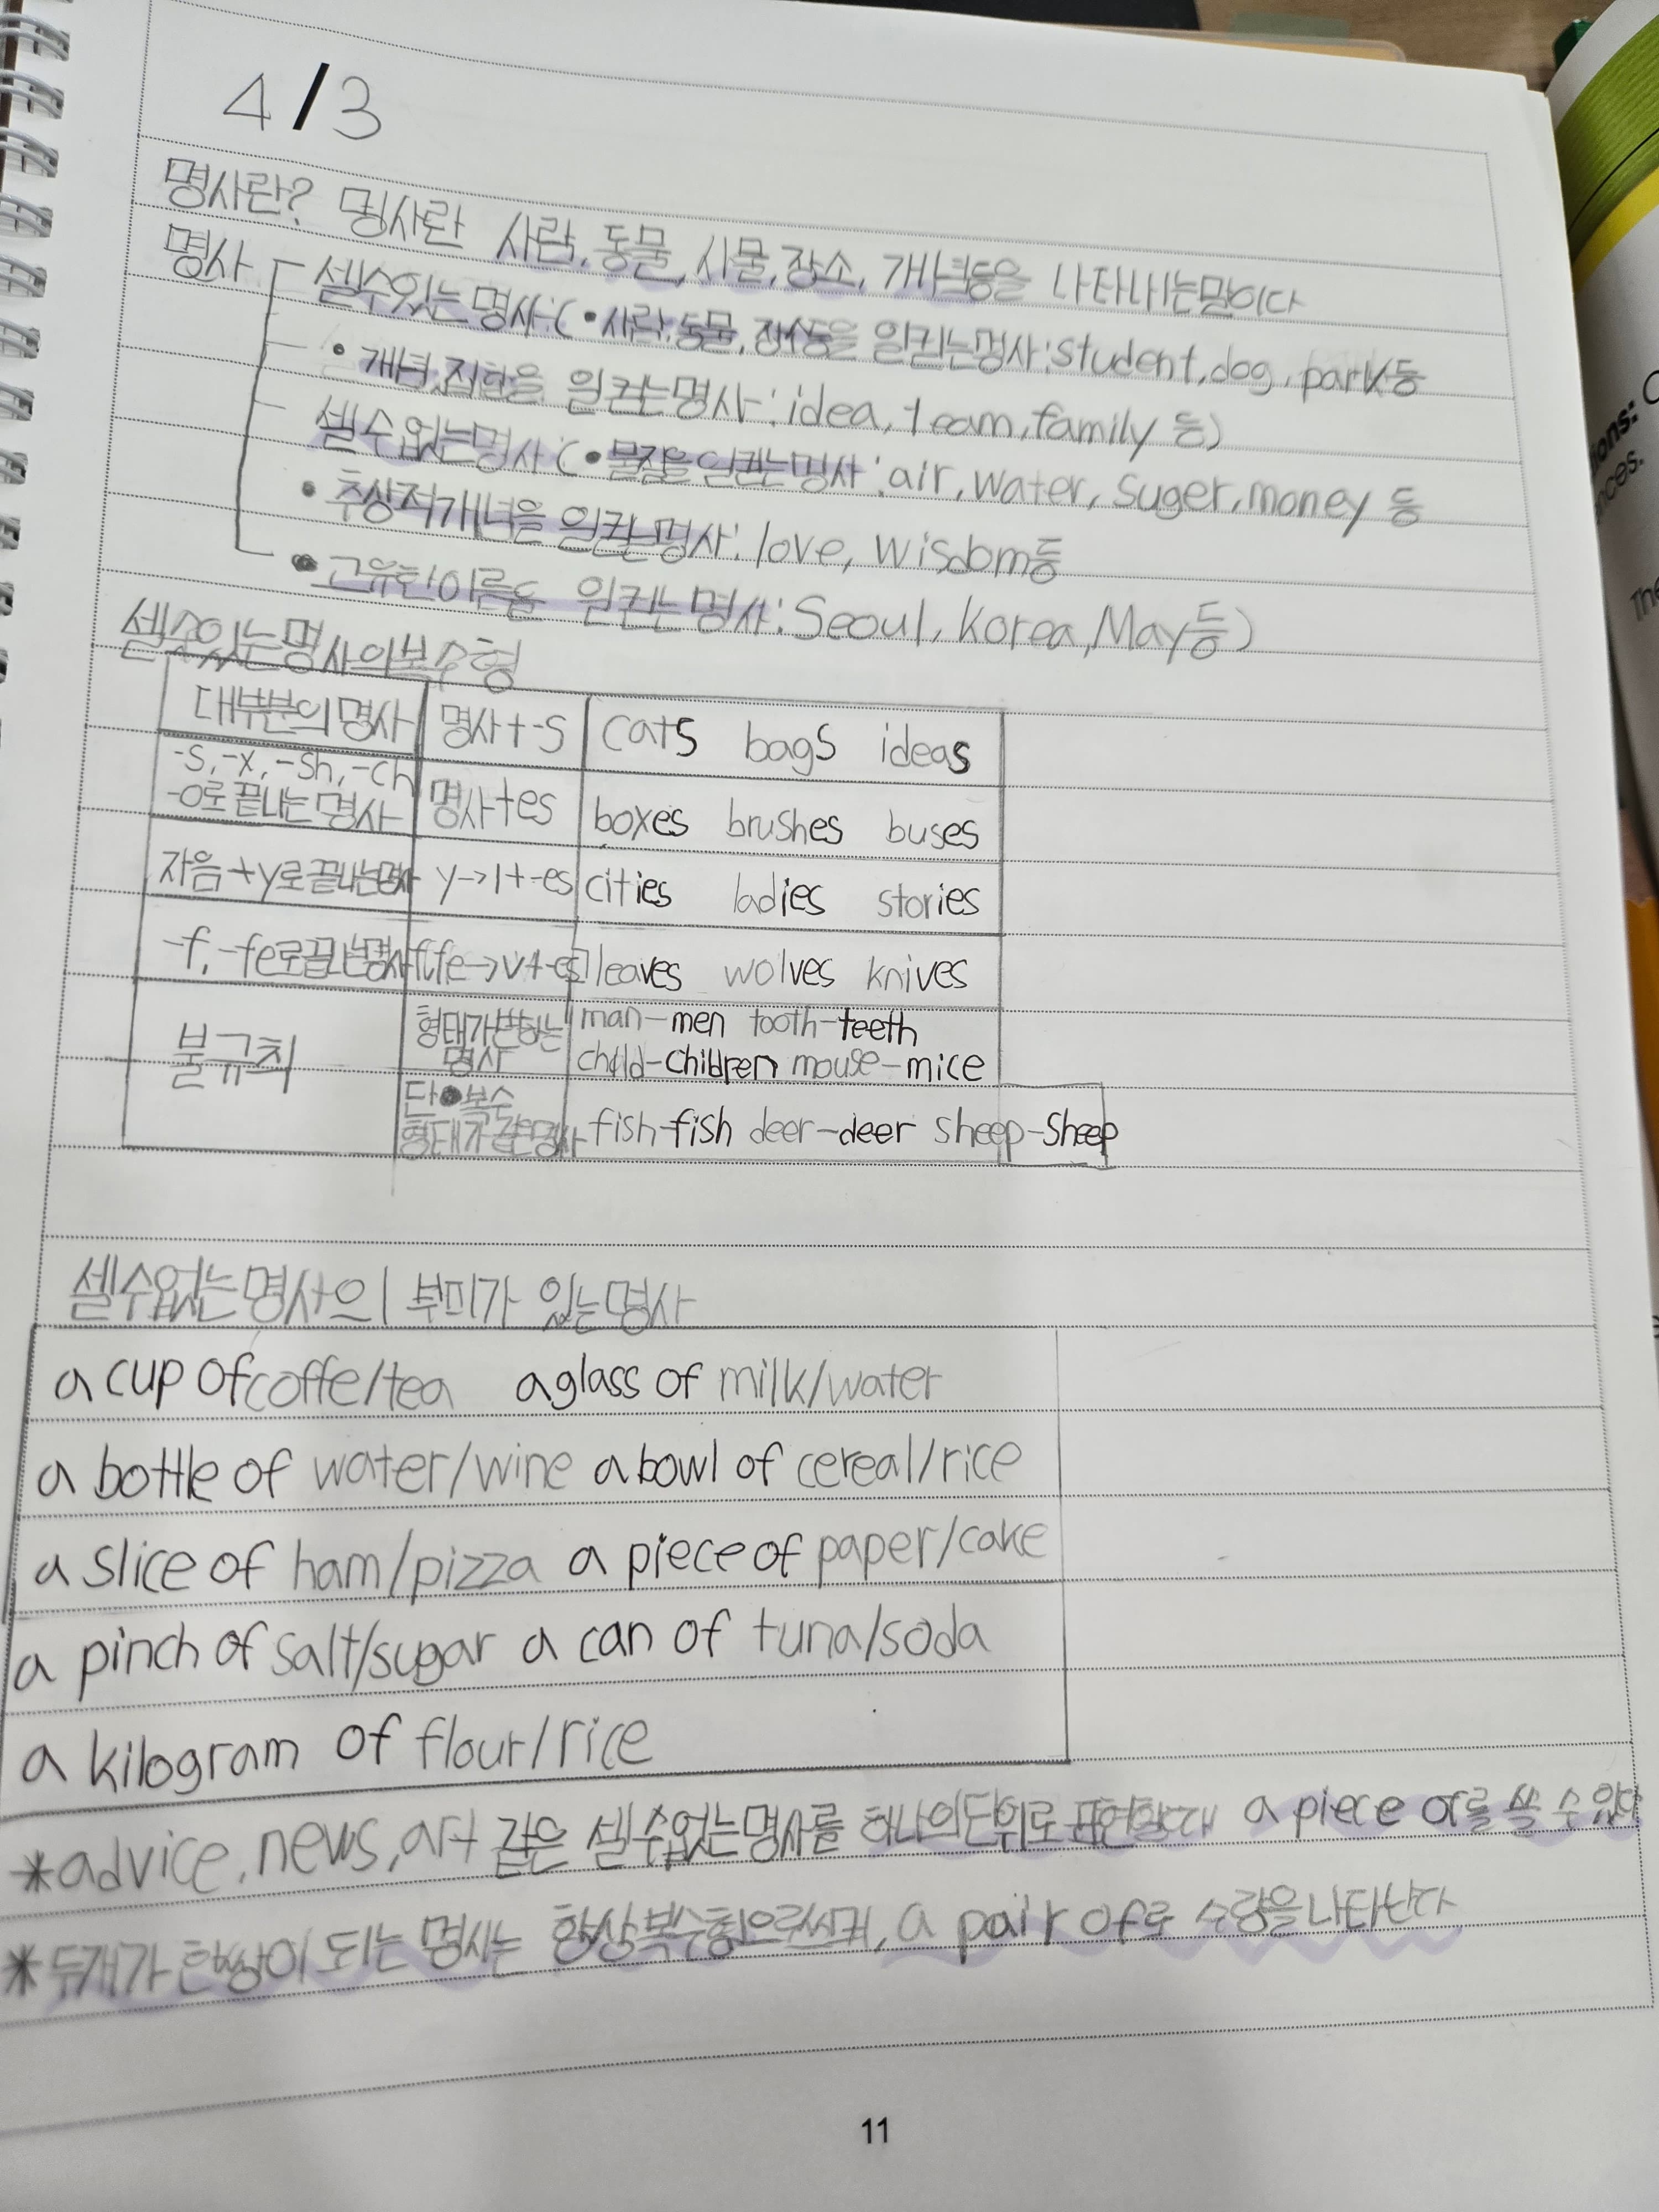 4/3
명사란? 명사란 사람, 동물, 사물, 장소, 개념등을 나타내는말이다
명사 셀수있는명사:(•사람,동물,장소등을 일컫는명사:student,dog,park등
•개념,집합을 일컫는명사:idea,team,family 등)
셀수없는명사(•물질을일컫는명사:air,water,suger,money 등
•추상적개념을 일컫는명사:love, wisdom등
•고유한이름을 일컫는명사:Seoul,Korea,May등)
셀수있는명사의복수형
대부분의명사 명사+-s cats bags ideas
-s,-x,-sh,-ch
-o로끝나는명사 명사+es boxes brushes buses
자음+y로끝나는명사 y→i+-es cities ladies stories
-f,-fe로끝나는명사 f,fe→v+-es leaves wolves knives
불규칙 형태가변하는
명사 man-men tooth-teeth
child-children mouse-mice
단•복수
형태가같은명사 fish-fish deer-deer sheep-sheep
셀수없는명사의 부피가 있는명사
a cup of coffe/tea a glass of milk/water
a bottle of water/wine a bowl of cereal/rice
a slice of ham/pizza a piece of paper/cake
a pinch of salt/sugar a can of tuna/soda
a kilogram of flour/rice
*advice,news,art 같은 셀수없는명사를 하나의단위로표현할때 a piece of를 쓸 수 있다
*두개가 한쌍이 되는 명사는 항상복수형으로쓰며, a pair of로 수량을나타낸다
11